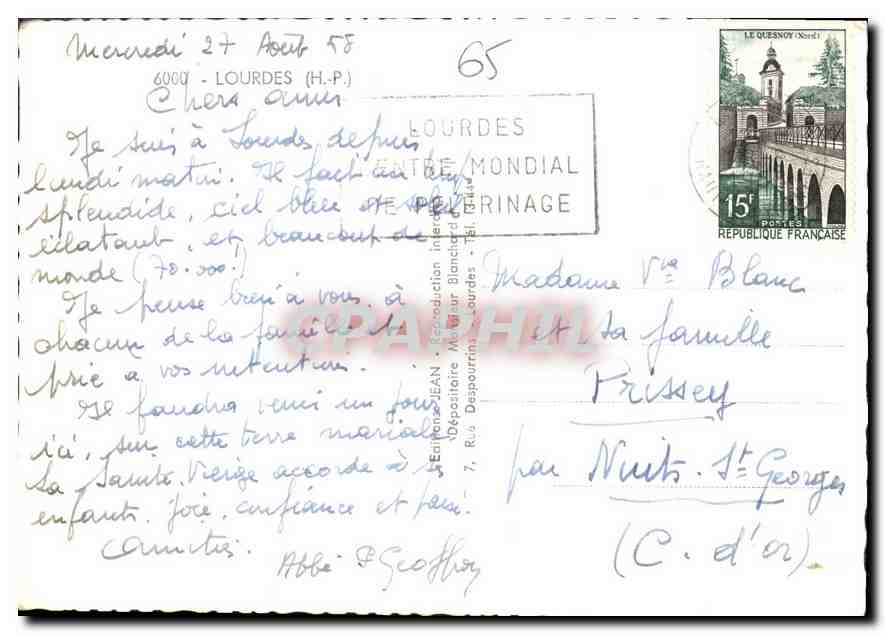 Mercredi 27 Août 58
6000 - LOURDES (H.-P.)
Chers amis
Je suis à Lourdes depuis
lundi matin. Il fait un temps
splendide, ciel bleu et soleil
éclatant, et beaucoup de
monde (70.000!)
Je pense bien à vous, à
chacun de la famille et
prie à vos intentions.
Il faudra venir un jour
ici, sur cette terre mariale
La Sainte Vierge accorde à ses
enfants. Joie, confiance et paix.
Amitiés.
Abbé P. Geoffroy
65
LOURDES
CENTRE MONDIAL
DE PELERINAGE
Editions JEAN - Reproduction interdite
Dépositaire Monsieur Blanchard
7, Rue Despourrins - Lourdes - Tél.
CPAPHIL
LE QUESNOY (Nord)
15F
POSTES
RÉPUBLIQUE FRANÇAISE
Madame Vve Blanc
et sa famille
Prissey
par Nuits-St Georges
(C. d'or)